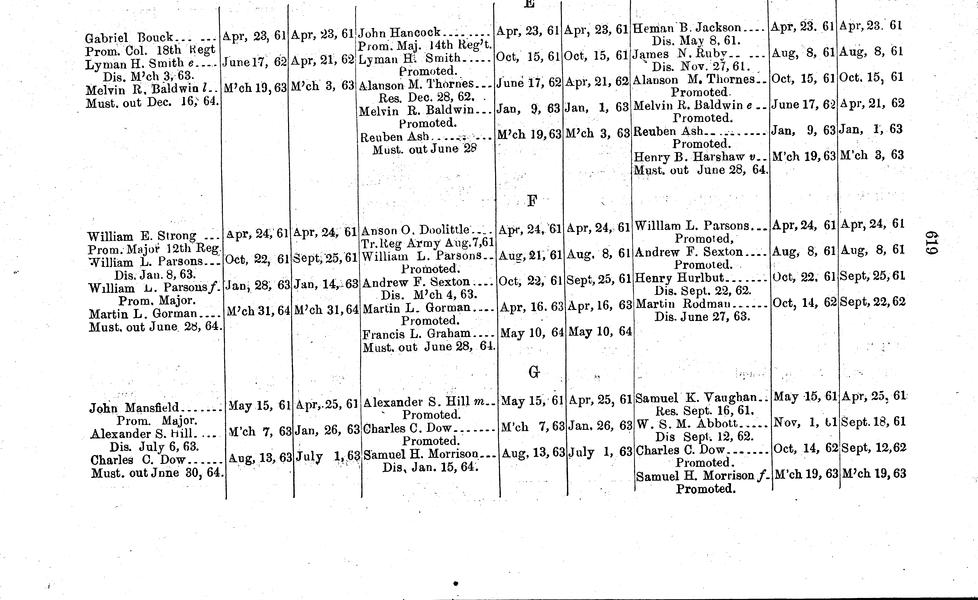 E
Gabriel Bouck Apr, 23, 61 Apr, 23, 61
Prom. Col. 18th Regt
Lyman H. Smith e June 17, 62 Apr, 21, 62
Dis. M'ch 3, 63.
Melvin R. Baldwin l M'ch 19, 63 M'ch 3, 63
Must. out Dec. 16, 64.
John Hancock Apr, 23, 61 Apr, 23, 61
Prom. Maj. 14th Reg't.
Lyman H. Smith Oct, 15, 61 Oct, 15, 61
Promoted.
Alanson M. Thornes June 17, 62 Apr, 21, 62
Res. Dec. 28, 62.
Melvin R. Baldwin Jan, 9, 63 Jan, 1, 63
Promoted.
Reuben Ash M'ch 19, 63 M'ch 3, 63
Must. out June 28
Heman B. Jackson Apr, 23. 61 Apr, 23. 61
Dis. May 8, 61.
James N. Ruby Aug, 8, 61 Aug, 8, 61
Dis. Nov. 27, 61.
Alanson M. Thornes Oct, 15, 61 Oct. 15, 61
Promoted.
Melvin R. Baldwin e June 17, 62 Apr, 21, 62
Promoted.
Reuben Ash Jan, 9, 63 Jan, 1, 63
Promoted.
Henry B. Harshaw v M'ch 19, 63 M'ch 3, 63
Must. out June 28, 64.
F
William E. Strong Apr, 24, 61 Apr, 24, 61
Prom. Major 12th Reg.
William L. Parsons Oct, 22, 61 Sept, 25, 61
Dis. Jan. 8, 63.
William L. Parsons f. Jan, 28, 63 Jan, 14, 63
Prom. Major.
Martin L. Gorman M'ch 31, 64 M'ch 31, 64
Must. out June 28, 64.
Anson O. Doolittle Apr, 24, 61 Apr, 24, 61
Tr. Reg Army Aug. 7, 61
William L. Parsons Aug, 21, 61 Aug, 8, 61
Promoted.
Andrew F. Sexton Oct, 22, 61 Sept, 25, 61
Dis. M'ch 4, 63.
Martin L. Gorman Apr, 16, 63 Apr, 16, 63
Promoted.
Francis L. Graham May 10, 64 May 10, 64
Must. out June 28, 64.
William L. Parsons Apr, 24, 61 Apr, 24, 61
Promoted,
Andrew F. Sexton Aug, 8, 61 Aug, 8, 61
Promoted.
Henry Hurlbut Oct, 22, 61 Sept, 25, 61
Dis. Sept. 22, 62.
Martin Rodman Oct, 14, 62 Sept, 22, 62
Dis. June 27, 63.
619
G
John Mansfield May 15, 61 Apr, 25, 61
Prom. Major.
Alexander S. Hill M'ch 7, 63 Jan, 26, 63
Dis. July 6, 63.
Charles C. Dow Aug, 13, 63 July 1, 63
Must. out Jnne 30, 64.
Alexander S. Hill m May 15, 61 Apr, 25, 61
Promoted.
Charles C. Dow M'ch 7, 63 Jan. 26, 63
Promoted.
Samuel H. Morrison Aug, 13, 63 July 1, 63
Dis, Jan. 15, 64.
Samuel K. Vaughan May 15, 61 Apr, 25, 61
Res. Sept. 16, 61.
W. S. M. Abbott Nov, 1, t1 Sept. 18, 61
Dis Sept. 12, 62.
Charles C. Dow Oct, 14, 62 Sept, 12, 62
Promoted.
Samuel H. Morrison f. M'ch 19, 63 M'ch 19, 63
Promoted.